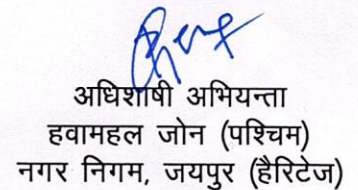 अधिशाषी अभियन्ता
हवामहल जोन (पश्चिम)
नगर निगम, जयपुर (हैरिटेज)